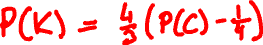 P(K) = 4/3 (P(C) - 1/4)